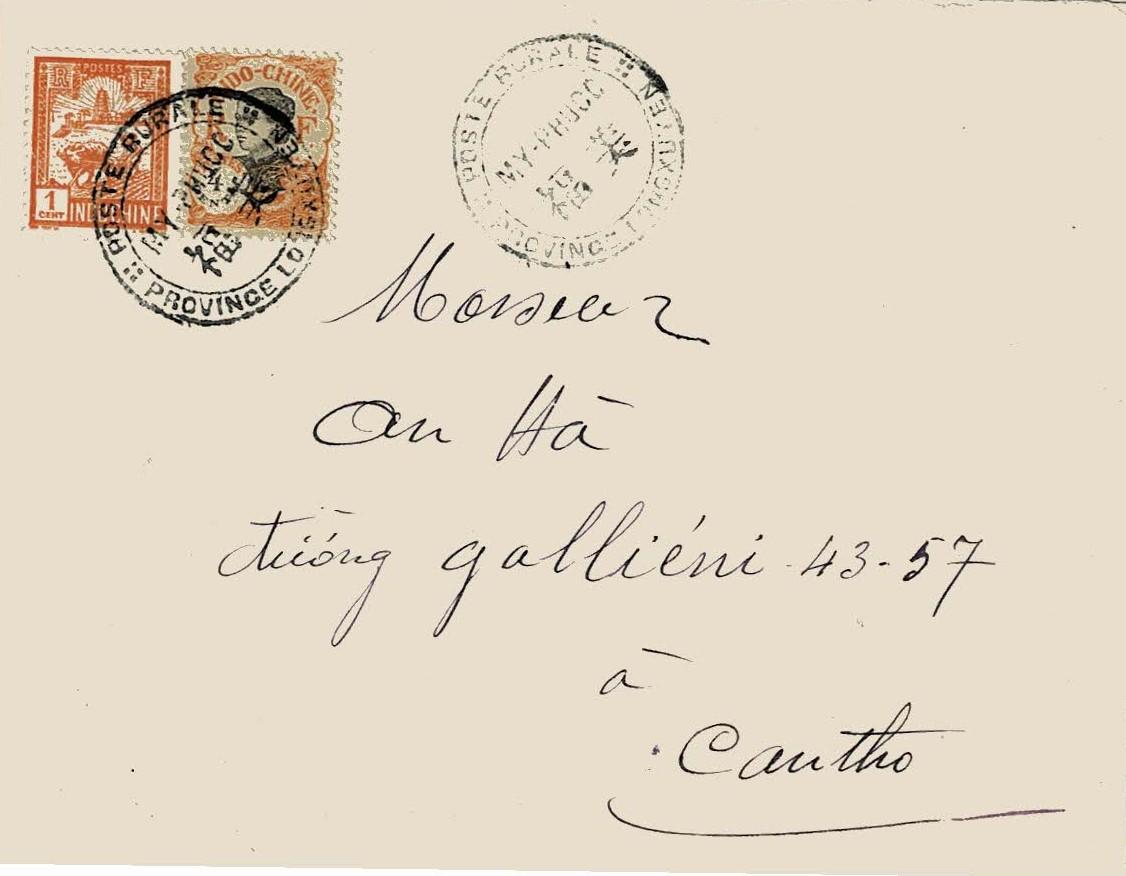 POSTES
R F
1
CENT
INDOCHINE
INDO-CHINE
POSTE RURALE
MY-PHUOC
PROVINCE LONGXUYEN
POSTE RURALE
MY-PHUOC
PROVINCE LONGXUYEN
Monsieur
An Hà
đường galliéni 43-57
à
Cantho